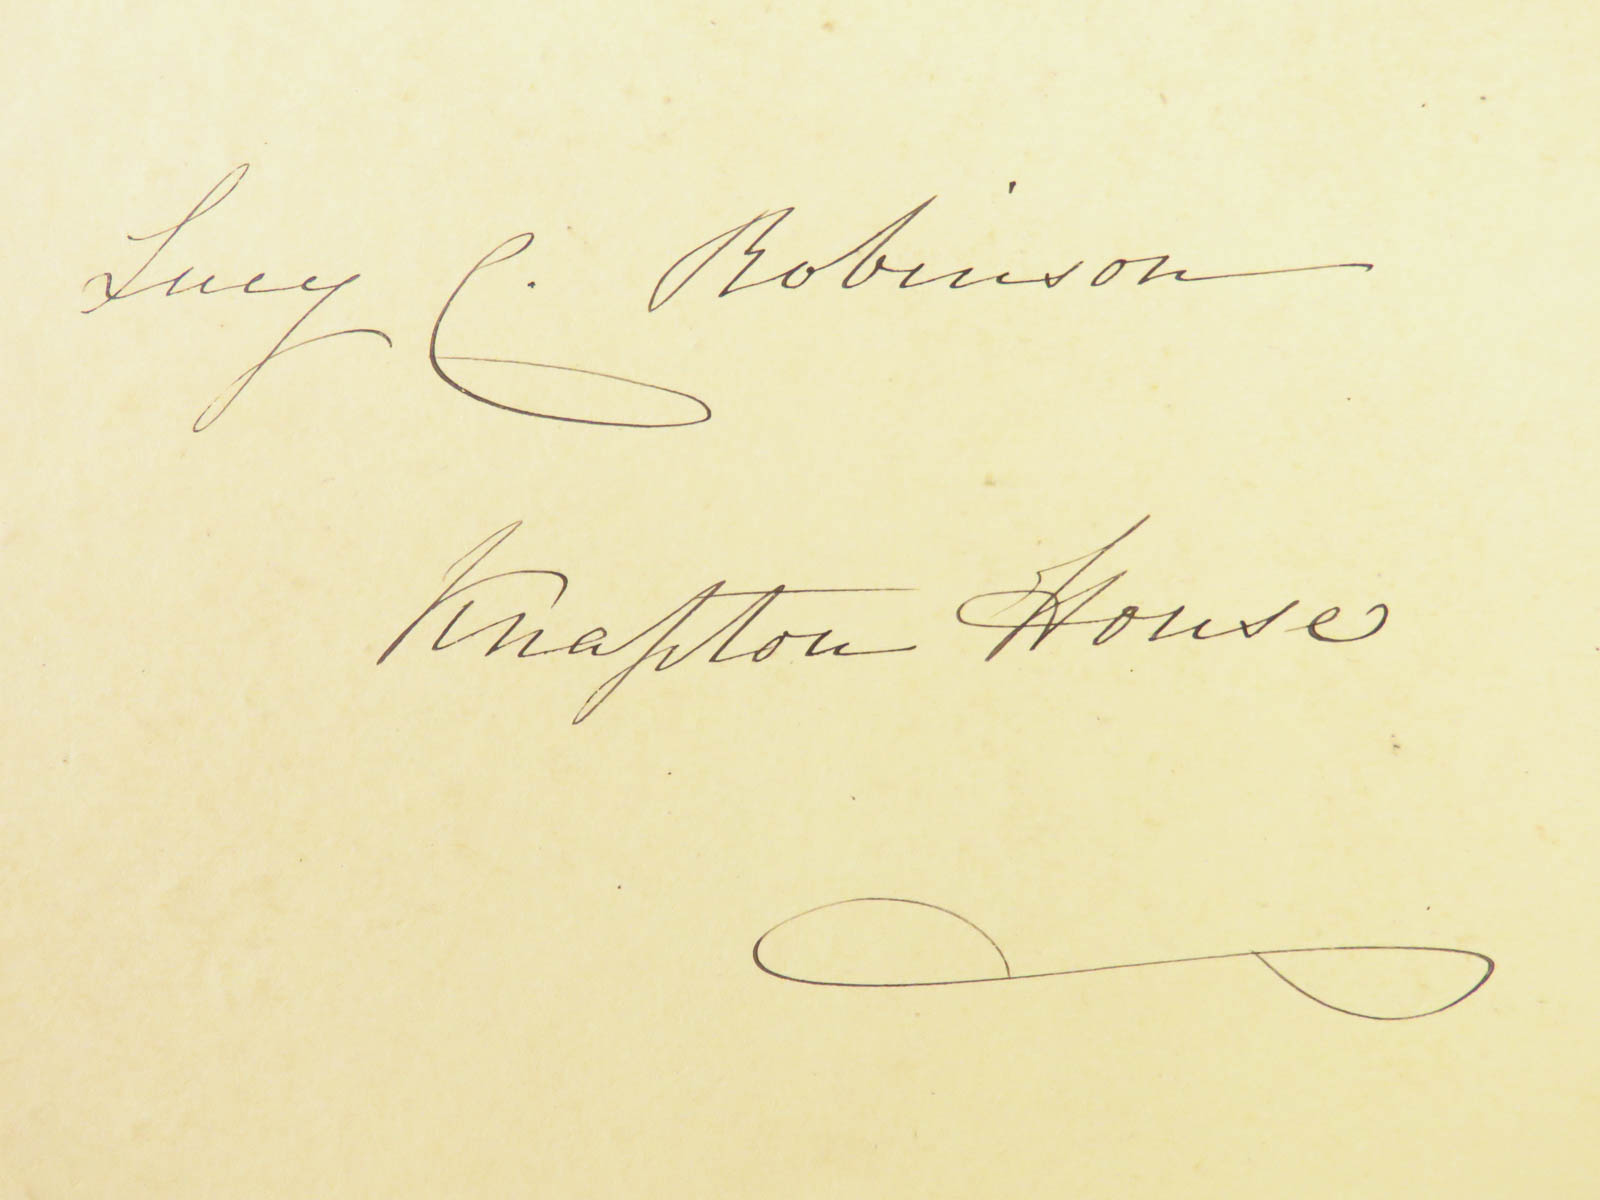 Lucy C. Robinson
Knapton House